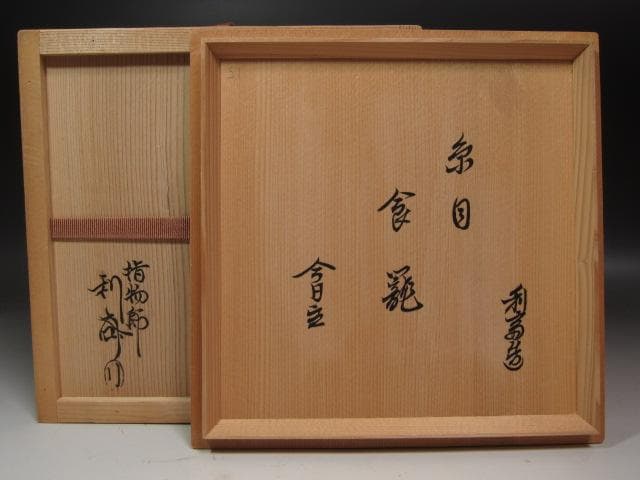 利斎造
糸目
食籠
今日庵
指物師
利斎